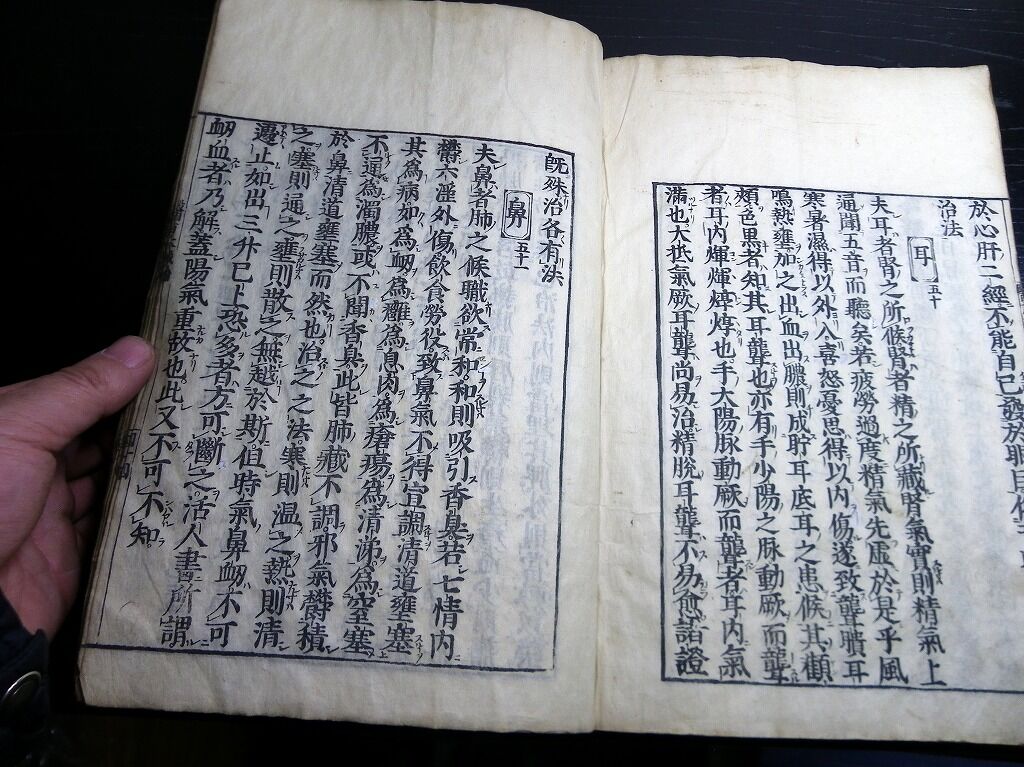 於心肝二經不能自已發於眼目
治法
耳 五十
夫耳者腎之所候腎者精之所藏腎氣實則精氣上
通聞五音而聽矣若疲勞過度精氣先虛於是乎風
寒暑濕得以外入喜怒憂思得以内傷遂致聾聵耳
鳴熱壅加之出血出膿則成貯耳底耳之患候其顴
頰色黒者知其耳聾也亦有手少陽之脉動厥而聾
者耳内煇煇焞焞也手太陽脉動厥而聾者耳内氣
滿也大抵氣厥耳聾尚易治精脱耳聾不易愈諸證
既殊治各有法
鼻 五十一
夫鼻者肺之候職欲常和和則吸引香臭若七情内
欝六淫外傷飲食勞役致鼻氣不得宣調清道壅塞
其爲病如爲衂爲癰爲息肉爲瘡瘍爲清涕爲窒塞
不通爲濁膿或不聞香臭此皆肺藏不調邪氣欝積
於鼻清道壅塞而然也治之之法寒則温之熱則清
之塞則通之壅則散之無越於斯伯時氣鼻衂不可
遽止如出三升已上恐多者方可斷之活人書所謂
衂血者乃解蓋陽氣重故也此又不可不知